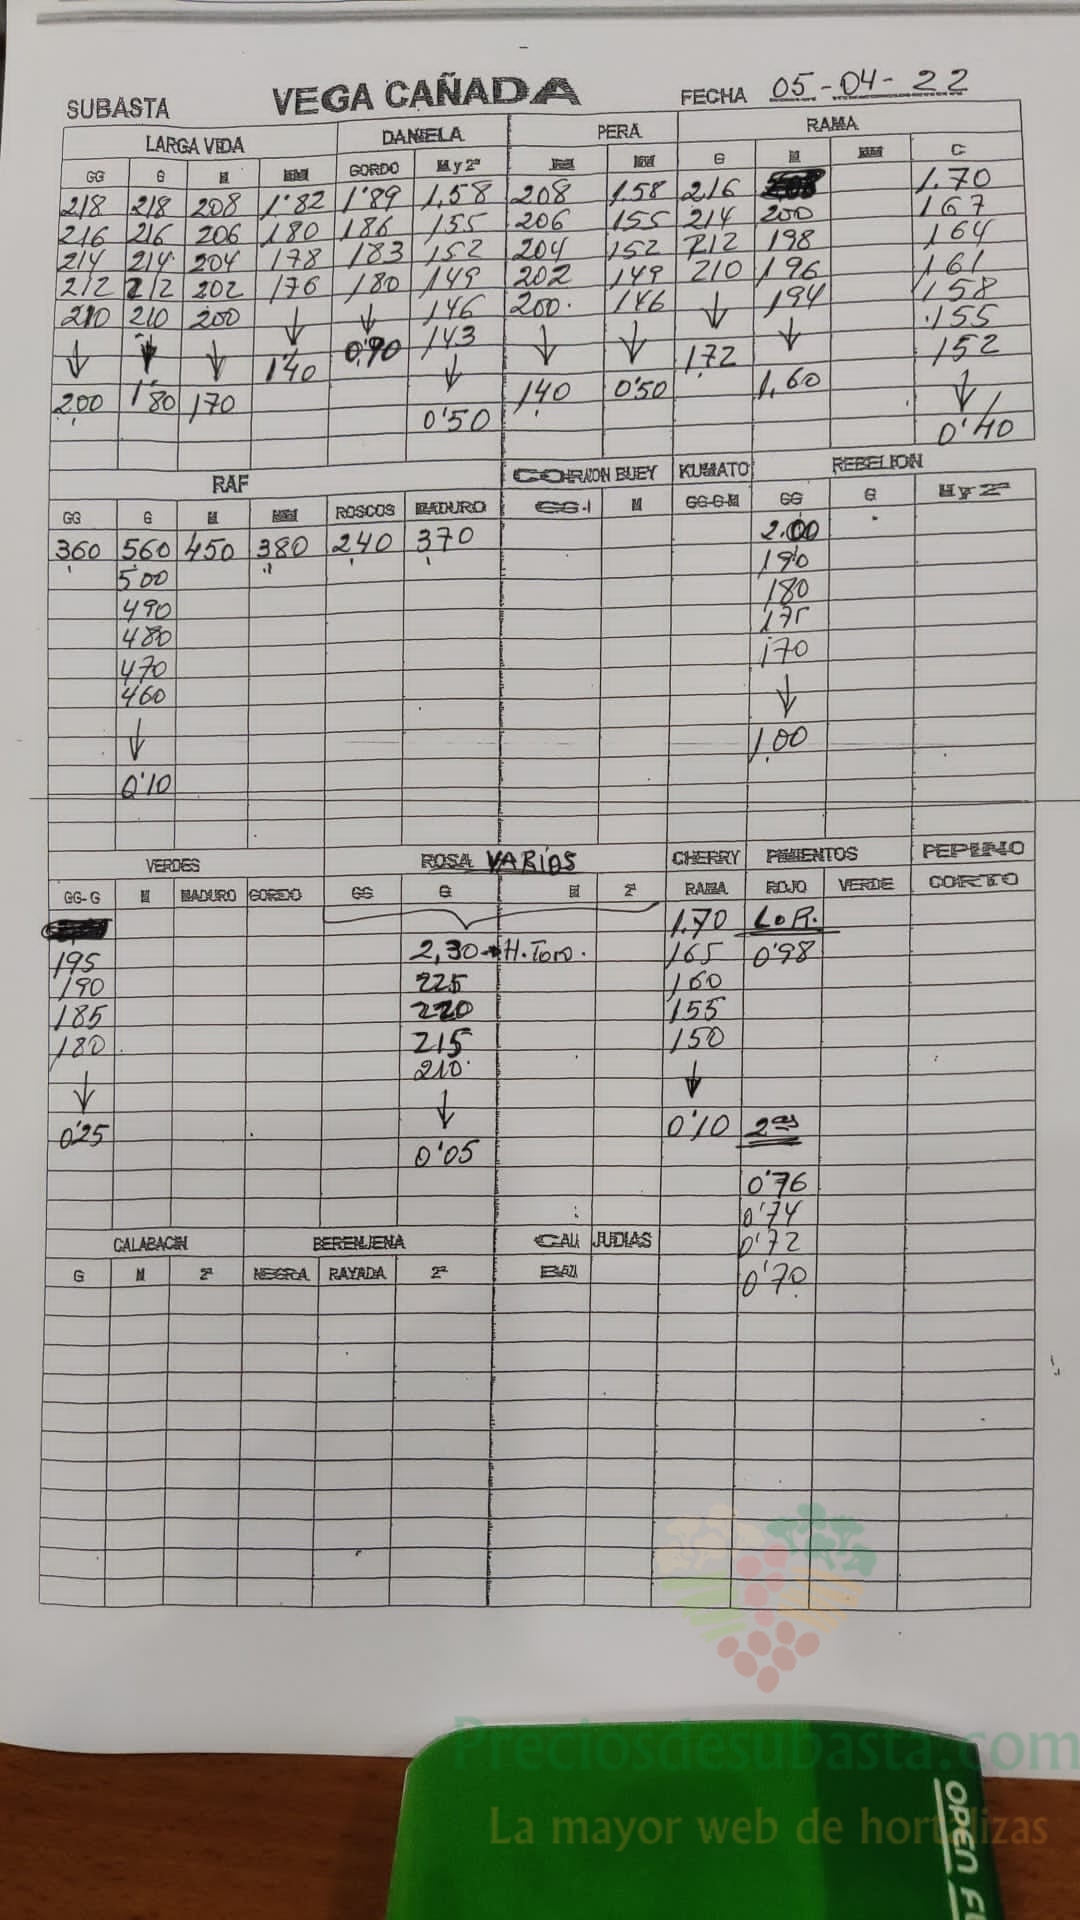 SUBASTA VEGA CAÑADA FECHA 05-04-22
LARGA VIDA DANIELA PERA RAMA
GG G M MM GORDO M y 2ª M MM G M MM C
218 218 208 1'82 1'89 1,58 208 1.58 216 1.70
216 216 206 180 186 155 206 155 214 200 167
214 214 204 178 183 152 204 152 212 198 164
212 212 202 176 180 149 202 149 210 196 161
210 210 200 ↓ ↓ 146 200 146 ↓ 194 158
↓ ↓ ↓ 1'40 0,90 143 ↓ ↓ 1,72 ↓ 155
200 1'80 170 ↓ 140 0'50 1,60 152
0'50 ↓
0'40
RAF CORAZON BUEY KUMATO REBELION
GG G M MM ROSCOS MADURO GG-G M GG-G-M GG G M y 2ª
360 560 450 380 240 370 2.00
500 190
490 180
480 175
470 170
460 ↓
↓ 1,00
0'10
VERDES ROSA VARIOS CHERRY PIMIENTOS PEPINO
GG-G M MADURO GORDO GG G M 2ª RAMA ROJO VERDE CORTO
1.70 LoR.
195 2,30→H.Toro. 165 0'98
190 225 160
185 220 155
180 215 150
↓ 210 ↓
0'25 ↓ 0'10 2as
0'05 0'76
0'74
CALABACIN BERENJENA CALA JUDIAS 0'72
G M 2ª NEGRA RAYADA 2ª BAZA 0'70
Preciosdesubasta.com
La mayor web de hortalizas
OPEN